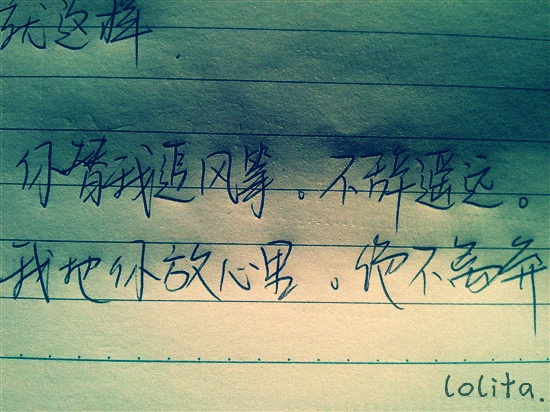 就这样
你替我追风筝。不辞遥远。
我把你放心里。绝不离弃
lolita.